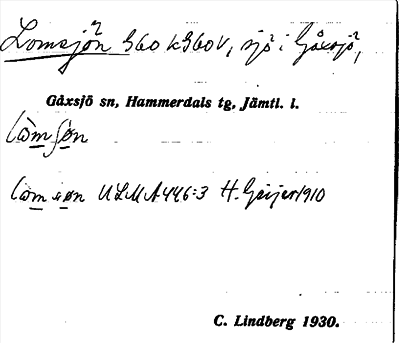 Lomsjön 360 k 360 V, sjö i Gåxsjö,
Gåxsjö sn, Hammerdals tg, Jämtl. l.
lòmʃøn
lòmsøn ULMA 446:3 H. Geijer 1910
C. Lindberg 1930.